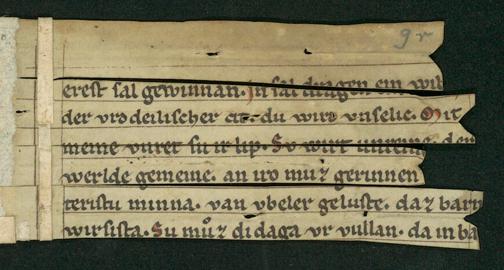 9 r
erest sal gewinnan. in sal dragen ein wib
der vrodeilischer du wird vnselic. Mit
meine vuret su ir lip. So wirt unreine den
werlde gemeine. an iro muz gerinnen
teristu minna. van vbeler geluste. daz barn
wirsista. Su muoz di daga vr vullan. da in ba